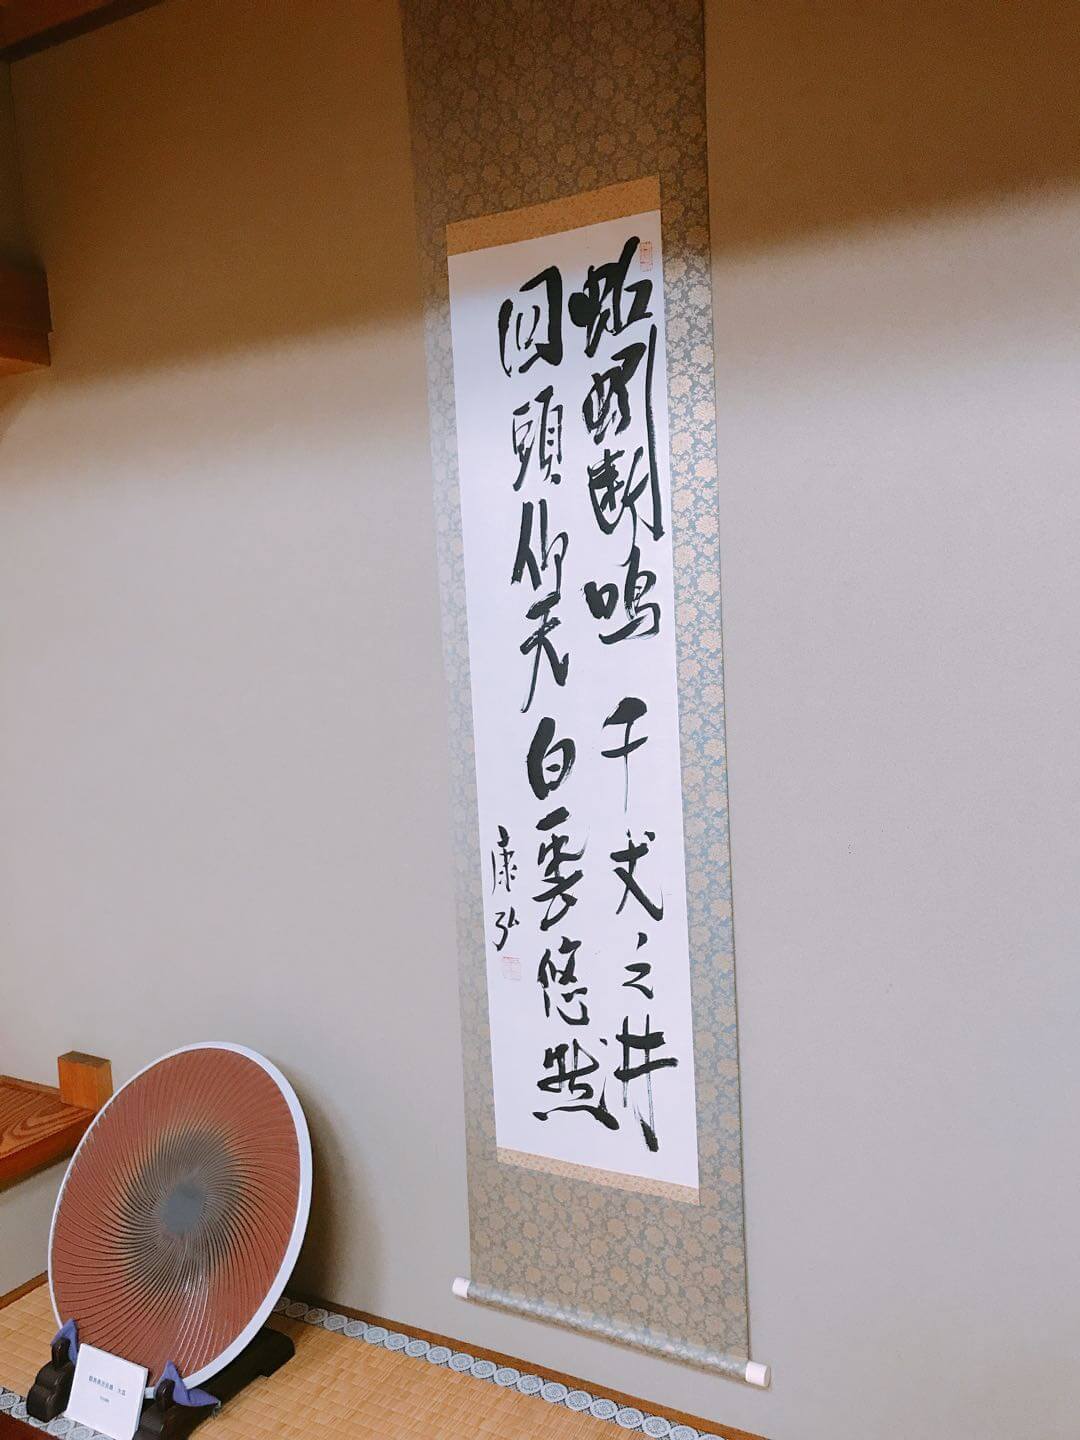 蚯蚓断鳴 千丈之井
回頭仰天白雲悠然
康弘